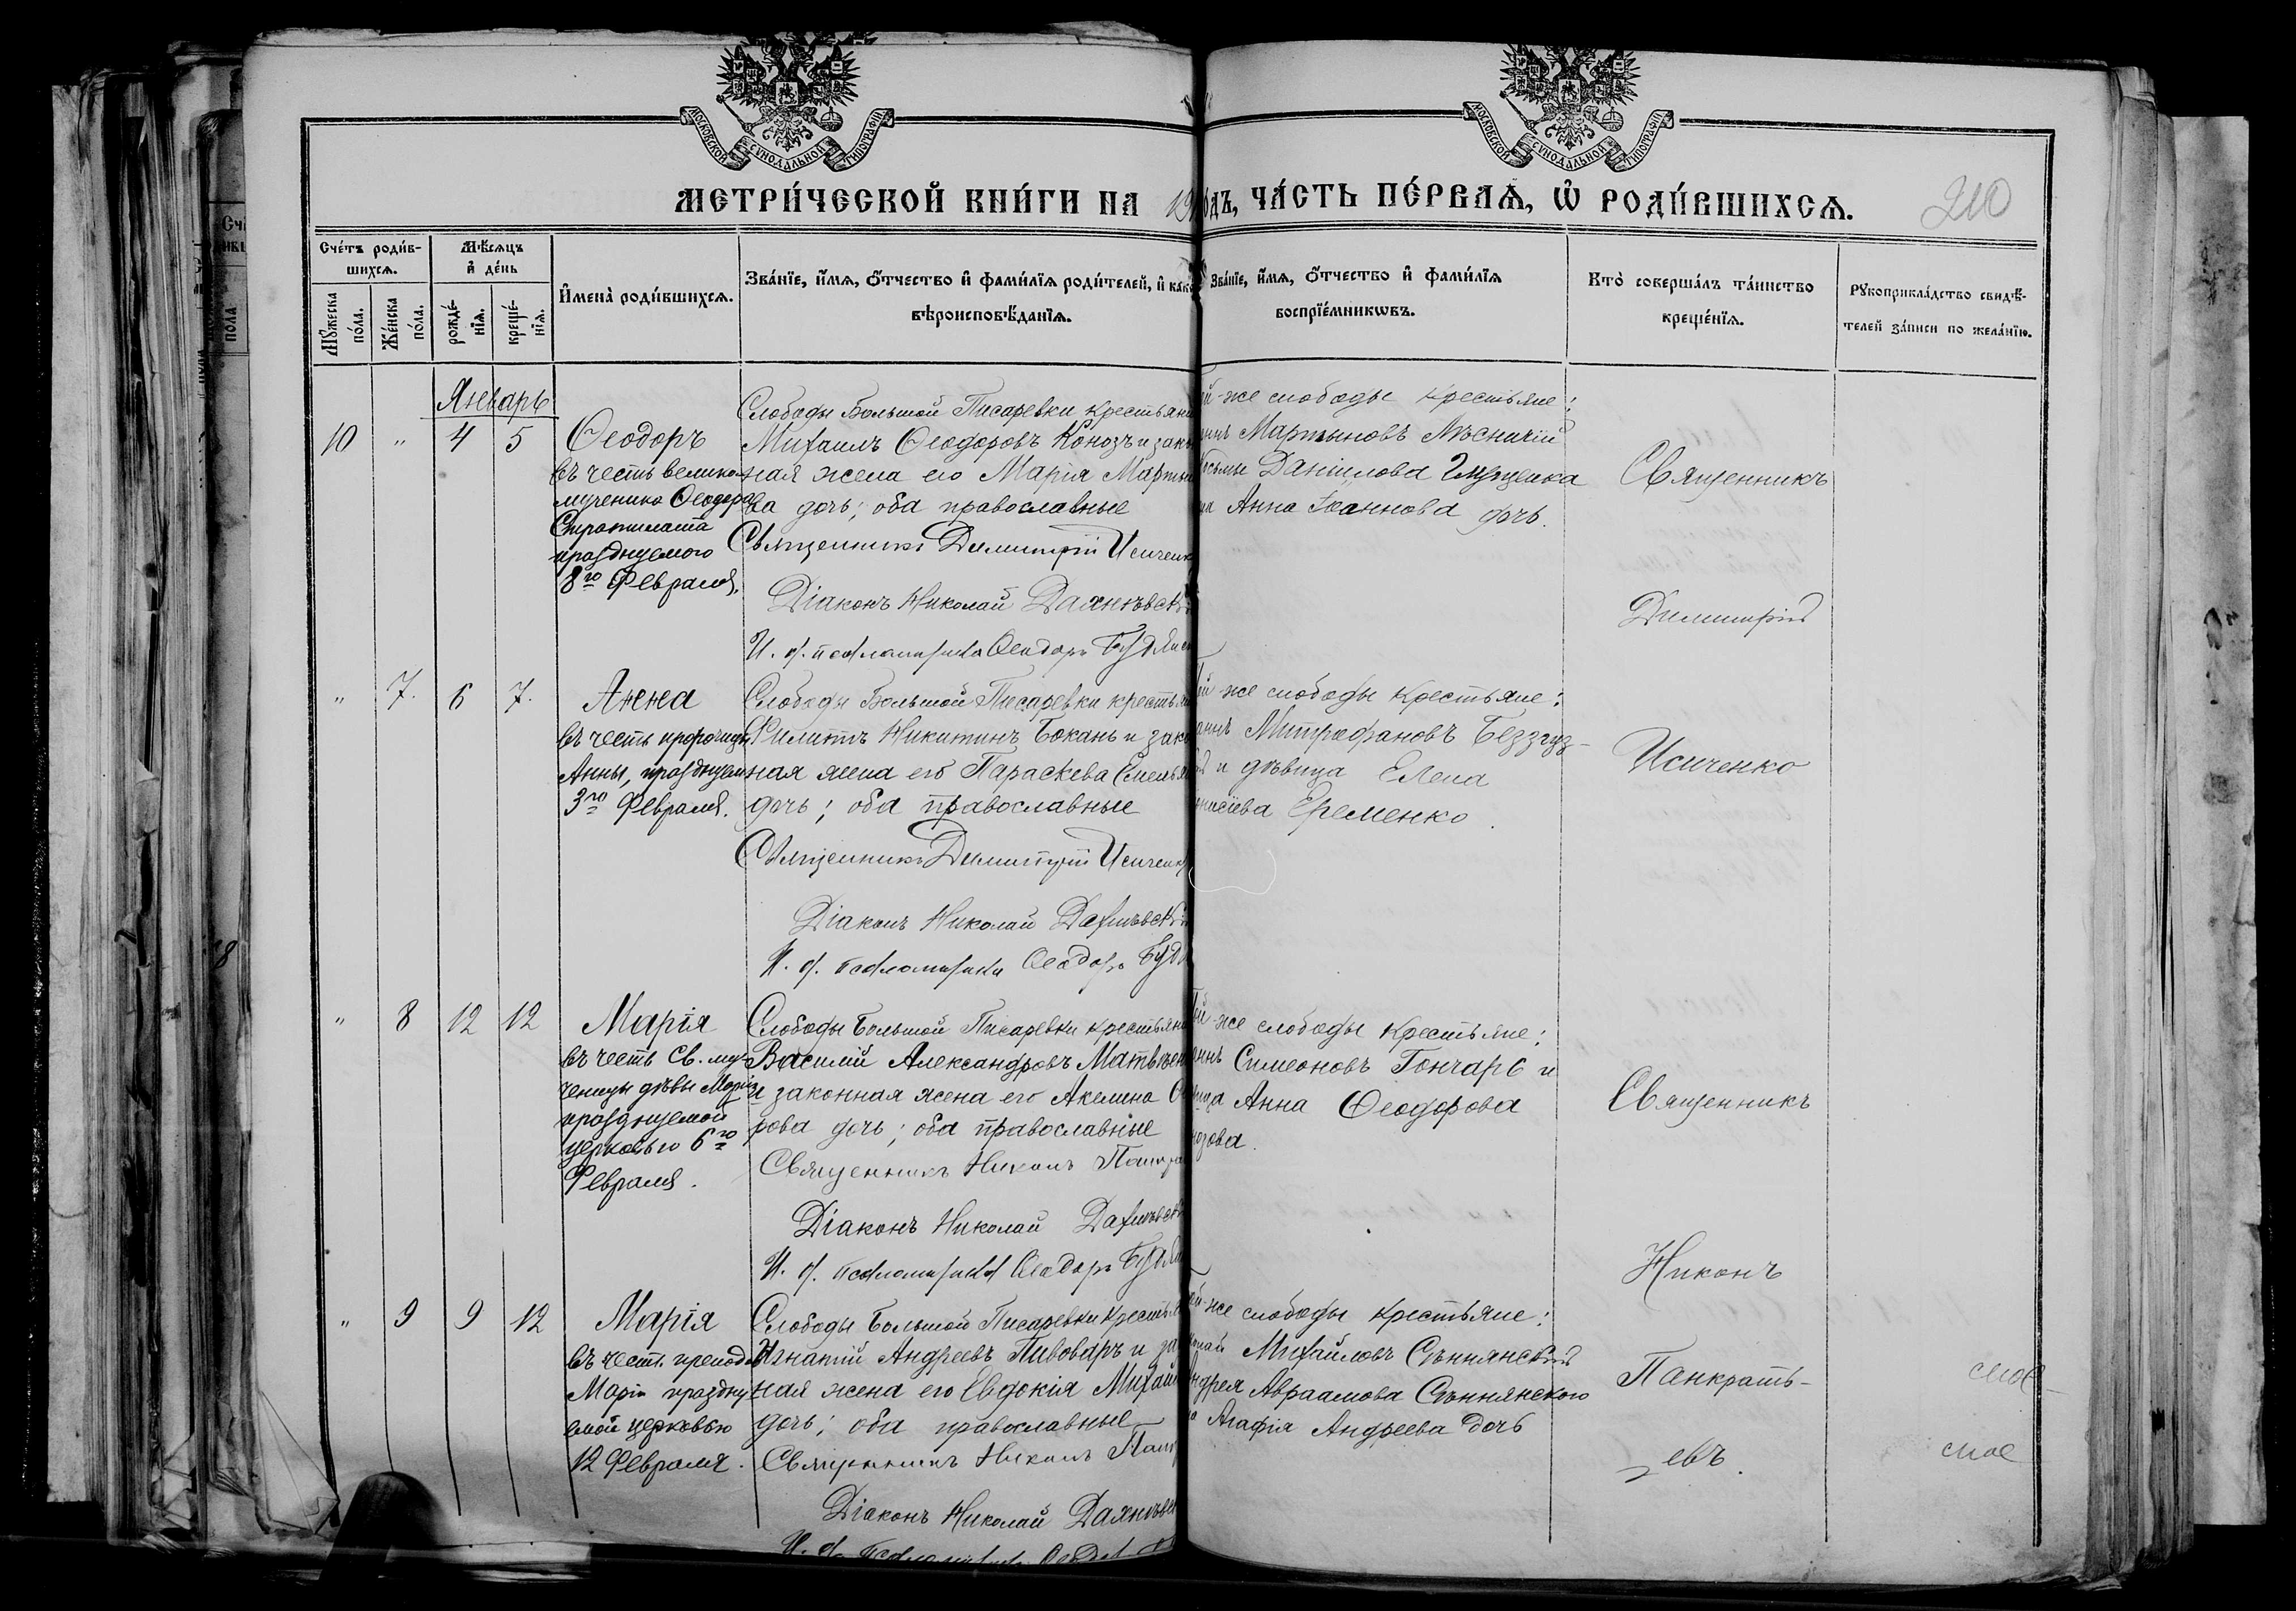 МОСКОВСКОЙ СУНОДАЛЬНОЙ ТИПОГРАФІИ
МОСКОВСКОЙ СУНОДАЛЬНОЙ ТИПОГРАФІИ
МЕТРИ́ЧЕСКОЙ КНИ́ГИ НА 19
ОДЪ, ЧА́СТЬ ПЕ́РВАѦ, Ѡ҆ РОДИ́ВШИХСѦ.
210
Сче́тъ роди́в-
шихсѧ.
Мѣ́сѧцъ
и҆ де́нь
Мꙋ́жеска
по́ла.
Же́нска
по́ла.
рожде́-
нїѧ.
креще́-
нїѧ.
И҆мена̀ роди́вшихсѧ.
Зва́нїе, и҆́мѧ, ѻ҆́тчество и҆ фами́лїѧ роди́телей, и҆ как
вѣроисповѣ́данїѧ.
Зва́нїе, и҆́мѧ, ѻ҆́тчество и҆ фами́лїѧ
воспрїе́мникѡвъ.
Кто̀ соверша́лъ та́инство
креще́нїѧ.
Рꙋкоприкла́дство свидѣ́-
телей за́писи по жела́нїю.
Январь
10 " 4 5
Ѳеодоръ
въ честь велико-
мученика Ѳеодора
Стратилата
празднуемого
8го Февраля.
Слободы Большой Писаревки крестьяни
Михаилъ Ѳеодоровъ Конозъ и зако
ная жена его Марія Марты
ва дочь; оба православные
Священникъ Димитрій Исиченк
Діаконъ Николай
И. д. псаломщика Ѳеодоръ
й-же слободы крестьяне:
Мартыновъ Мѣсничій
Даніилова
Анна Іоаннова дочь.
Священникъ
Димитрій
Исиченко
" 7. 6 7.
Анна
въ честь пророчицы
Анны, празднуем
3го Февраля.
Слободы Большой Писаревки крестья
Филиппъ Никитинъ Бокань и зако
ная жена его Параскева Емелья
дочь; оба православные
Священникъ Димитрій Исиченк
Діаконъ Николай
И. д. псаломщика Ѳеодоръ
й же слободы крестьяне:
Митрофановъ Беззуз-
и дѣвица Елена
Еременко.
" 8 12 12
Марія
въ честь Св. му-
ченицы дѣвы Маріи
празднуемой
церковью 6го
Февраля.
Слободы Большой Писаревки крестьяни
Василій Александровъ Матвѣен
и законная жена его Акелина Ѳ
рова дочь; оба православные
Священникъ Никонъ Панкра
Діаконъ Николай
И. д. псаломщика Ѳеодоръ
ой-же слободы крестьяне:
Симеоновъ Гончаръ и
Анна Ѳеодорова
Священникъ
Никонъ
Панкрать-
евъ.
" 9 9 12
Марія
въ чест. препод
Маріи праздну
емой церковью
12 Февраля.
Слободы Большой Писаревки крестья
Игнатій Андреевъ Пивоваръ и за
ная жена его Евдокія Михайл
дочь; оба православные
Священникъ Никонъ Панк
Діаконъ Николай
И. д. псаломщика Ѳеодоръ
ой-же слободы крестьяне:
Михайловъ Сѣннянскій
Андрея Авраамова Сѣннянского
Агафія Андреева дочь